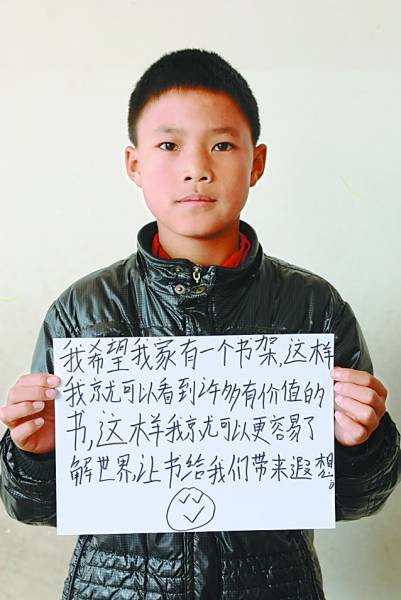 我希望我家有一个书架,这样
我就可以看到许多有价值的
书,这样我就可以更容易了
解世界,让书给我们带来遐想。